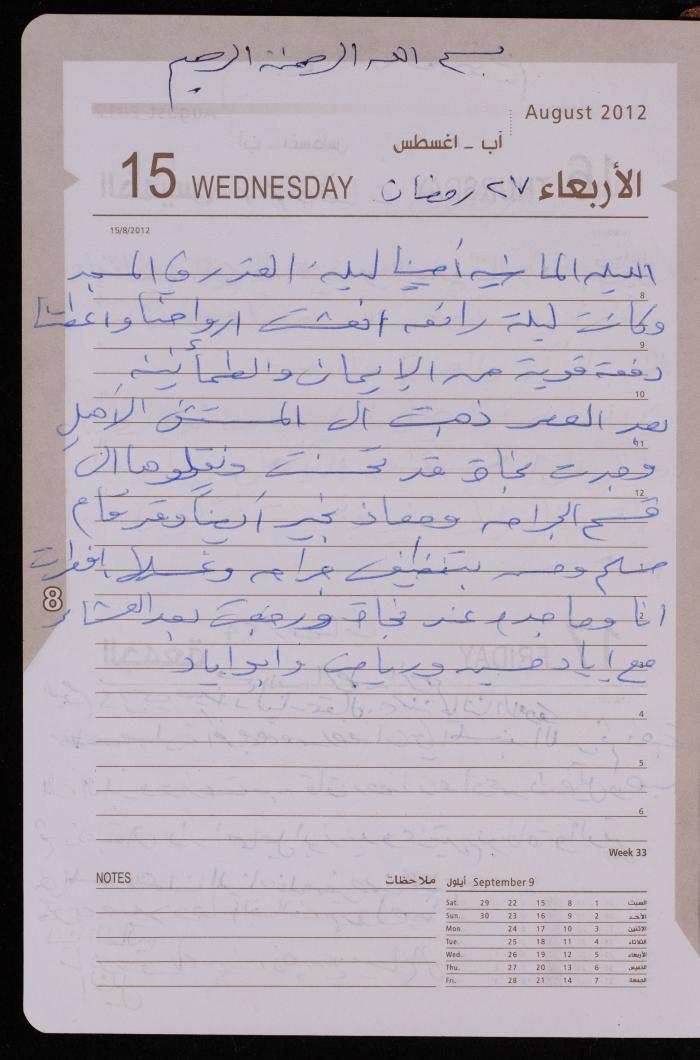 بسم الله الرحمن الرحيم
August 2012
آب - اغسطس
15 WEDNESDAY ٢٧ رمضان الأربعاء
15/8/2012
الليله الماضيه أحيينا ليلة القدر في المسجد
8
وكانت ليلة رائعه انعشت ارواحنا واعطتنا
9
دفعة قوية من الإيمان والطمأنينه
10
بعد العصر ذهبت الى المستشفى الأهلي
11
وجدت نجاة قد تحسنت ونقلوها الى
12
قسم الجراحه ومعاذ بخير أيضاً وقد قام
مسلم وحسن بتنظيف جراحه وغسله افطرت
8
انا وماجده عند نجاة ورجعت بعد العشاء
2
مع إياد ورياض وابو اياد
3
4
5
6
Week 33
NOTES ملاحظات
أيلول September 9
Sat. 29 22 15 8 1 السبت
Sun. 30 23 16 9 2 الأحد
Mon. 24 17 10 3 الإثنين
Tue. 25 18 11 4 الثلاثاء
Wed. 26 19 12 5 الأربعاء
Thu. 27 20 13 6 الخميس
Fri. 28 21 14 7 الجمعة